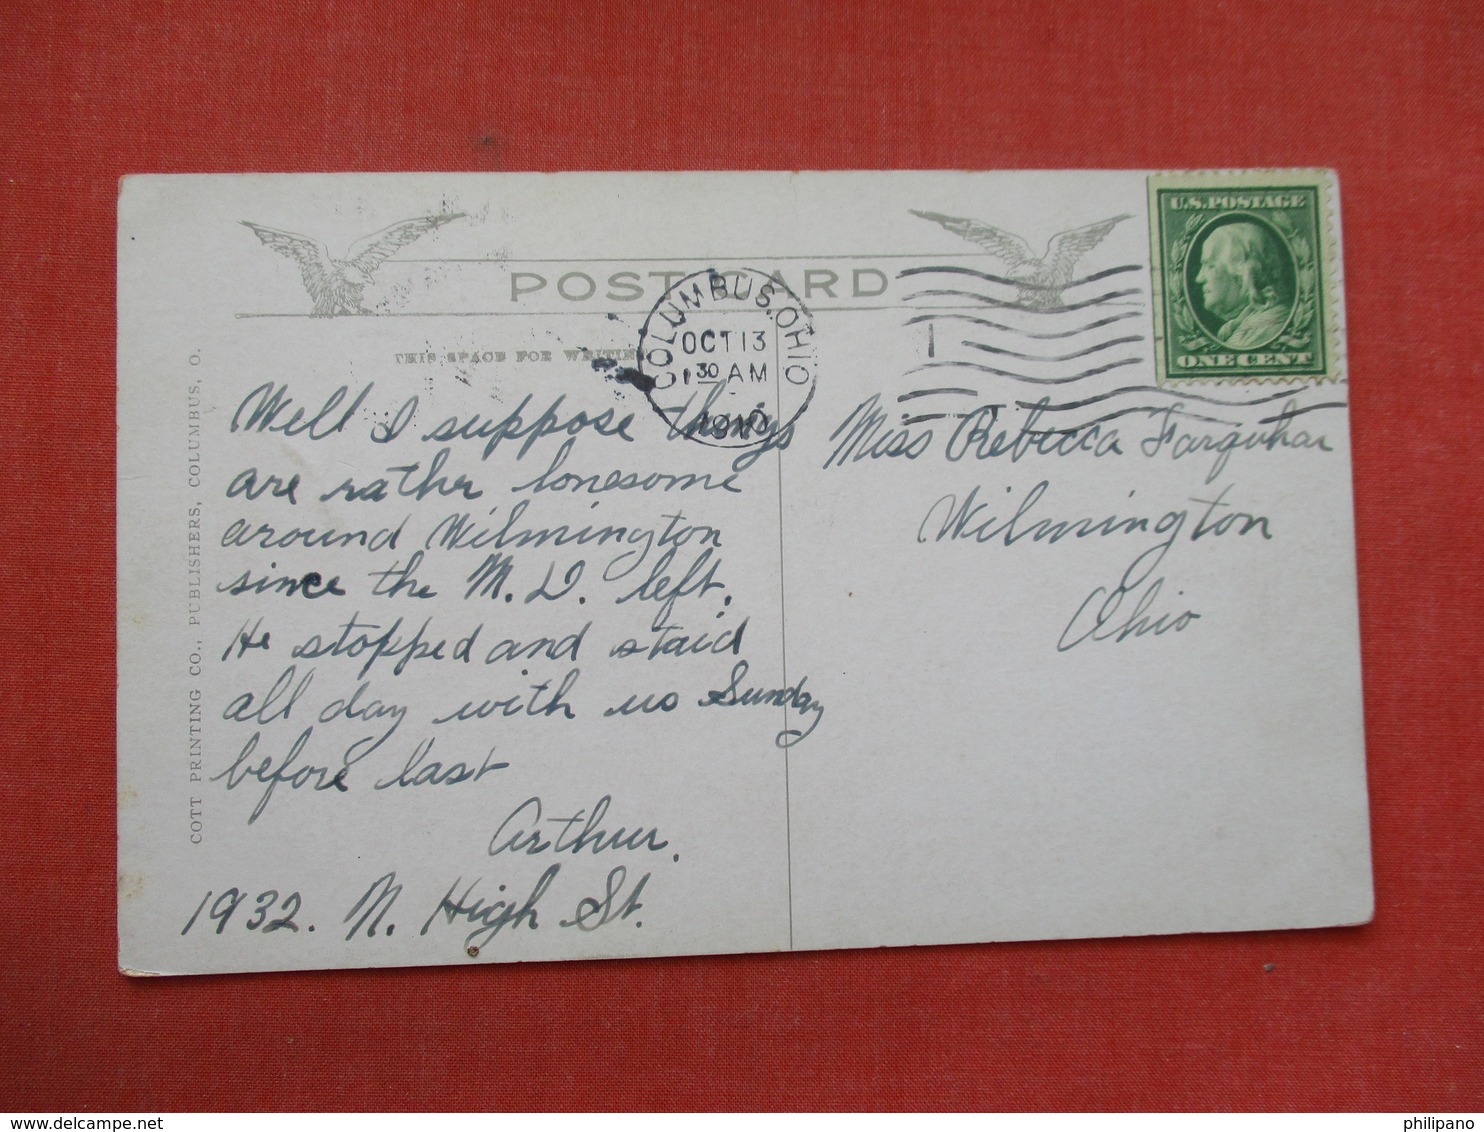 POST CARD
THIS SPACE FOR WRITING
U.S. POSTAGE
ONE CENT
COLUMBUS, OHIO
OCT 13
1 30 AM
1910
Well I suppose things
are rather lonesome
around Wilmington
since the M.D. left.
He stopped and staid
all day with us Sunday
before last
Arthur.
1932. N. High St.
Miss Rebecca Farquhar
Wilmington
Ohio
COTT PRINTING CO., PUBLISHERS, COLUMBUS, O.
philipano